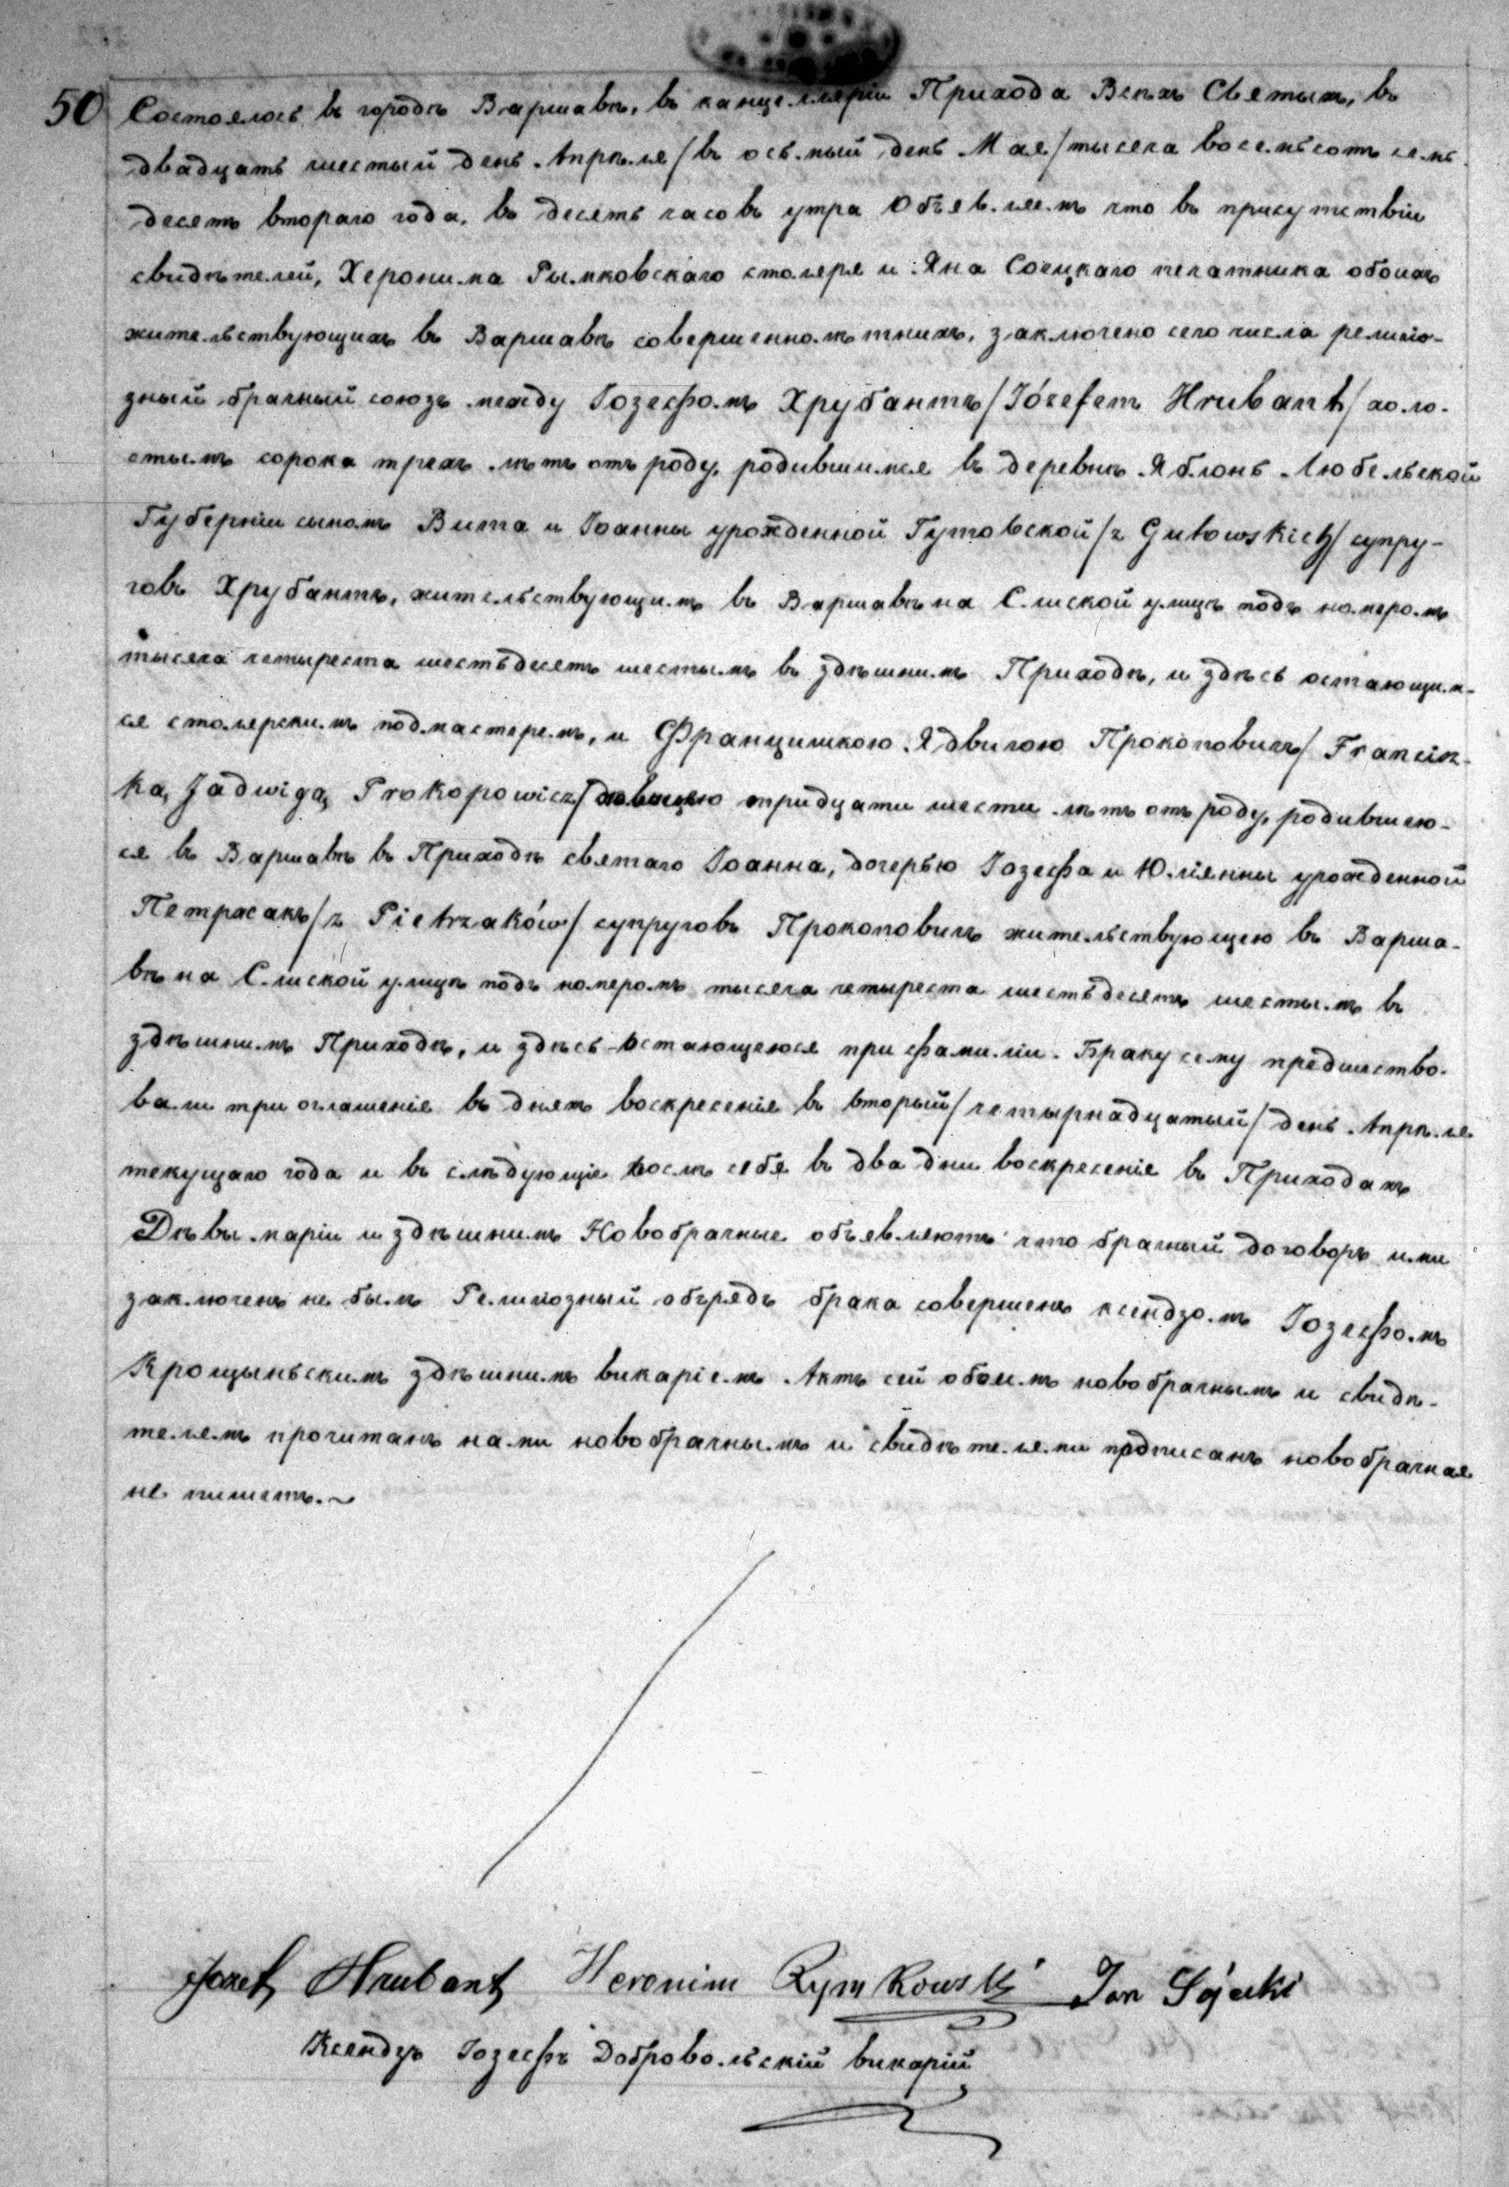 50 Состоялось въ городѣ Варшавѣ, въ канцелляріи Прихода Всѣхъ Святыхъ, въ
двадцать шестый день Апрѣля / въ осьмый день Мая / тысяча восемьсотъ семь
десятъ втораго года, въ десять часовъ утра Объявляемъ что въ присутствіи
свидѣтелей, Херонима Рымковскаго столяря и Яна Соецкаго печатника обоихъ
жительствующихъ въ Варшавѣ совершеннолѣтнихъ, заключено сего числа религіо-
зный брачный союзъ между Іозефомъ Хрубантъ / Józefem Hrubant / холо-
стымъ сорока трехъ лѣтъ отъ роду, родившимся въ деревнѣ Яблонь Любельской
Губерніи сыномъ Вита и Іоанны урожденной Гутовской / z Gutowskich / супру-
говъ Хрубантъ, жительствующимъ въ Варшавѣ на Слиской улицѣ подъ номеромъ
тысяча четыреста шестьдесятъ шестымъ въ здѣшнимъ Приходѣ, и здѣсь остающим-
ся столярскимъ подмастеремъ, и Францишкою Ядвигою Прокоповичъ / Francisz-
ką Jadwigą Prokopowicz / дѣвицею тридцати шести лѣтъ отъ роду, родившею-
ся въ Варшавѣ въ Приходѣ святаго Іоанна, дочерью Іозефа и Юліянны урожденной
Петржакъ / z Pietrzaków / супруговъ Прокоповичъ жительствующею въ Варша-
вѣ на Слиской улицѣ подъ номеромъ тысяча четыреста шестьдесятъ шестымъ въ
здѣшнимъ Приходѣ, и здѣсь остающеюся при фамиліи. Браку сему предшество-
вали три оглашенія въ дняхъ воскресенія въ вторый / четырнадцатый / день Апрѣля
текущаго года и въ слѣдующіе послѣ себя въ два дни воскресенія въ Приходахъ
Дѣвы маріи и здѣшнимъ Новобрачные объявляютъ что брачный договоръ ими
заключенъ не былъ Религіозный обрядъ брака совершенъ ксендзомъ Іозефомъ
Крощыньскимъ здѣшнимъ викаріемъ. Актъ сей обоимъ новобрачнымъ и свидѣ-
телямъ прочитанъ нами новобрачнымъ и свидѣтелями подписанъ новобрачная
не пишетъ.~
Józef Hrubant Heronim Rymkowski Jan Sójecki
Ксендзъ Іозефъ Добровольскій викарій